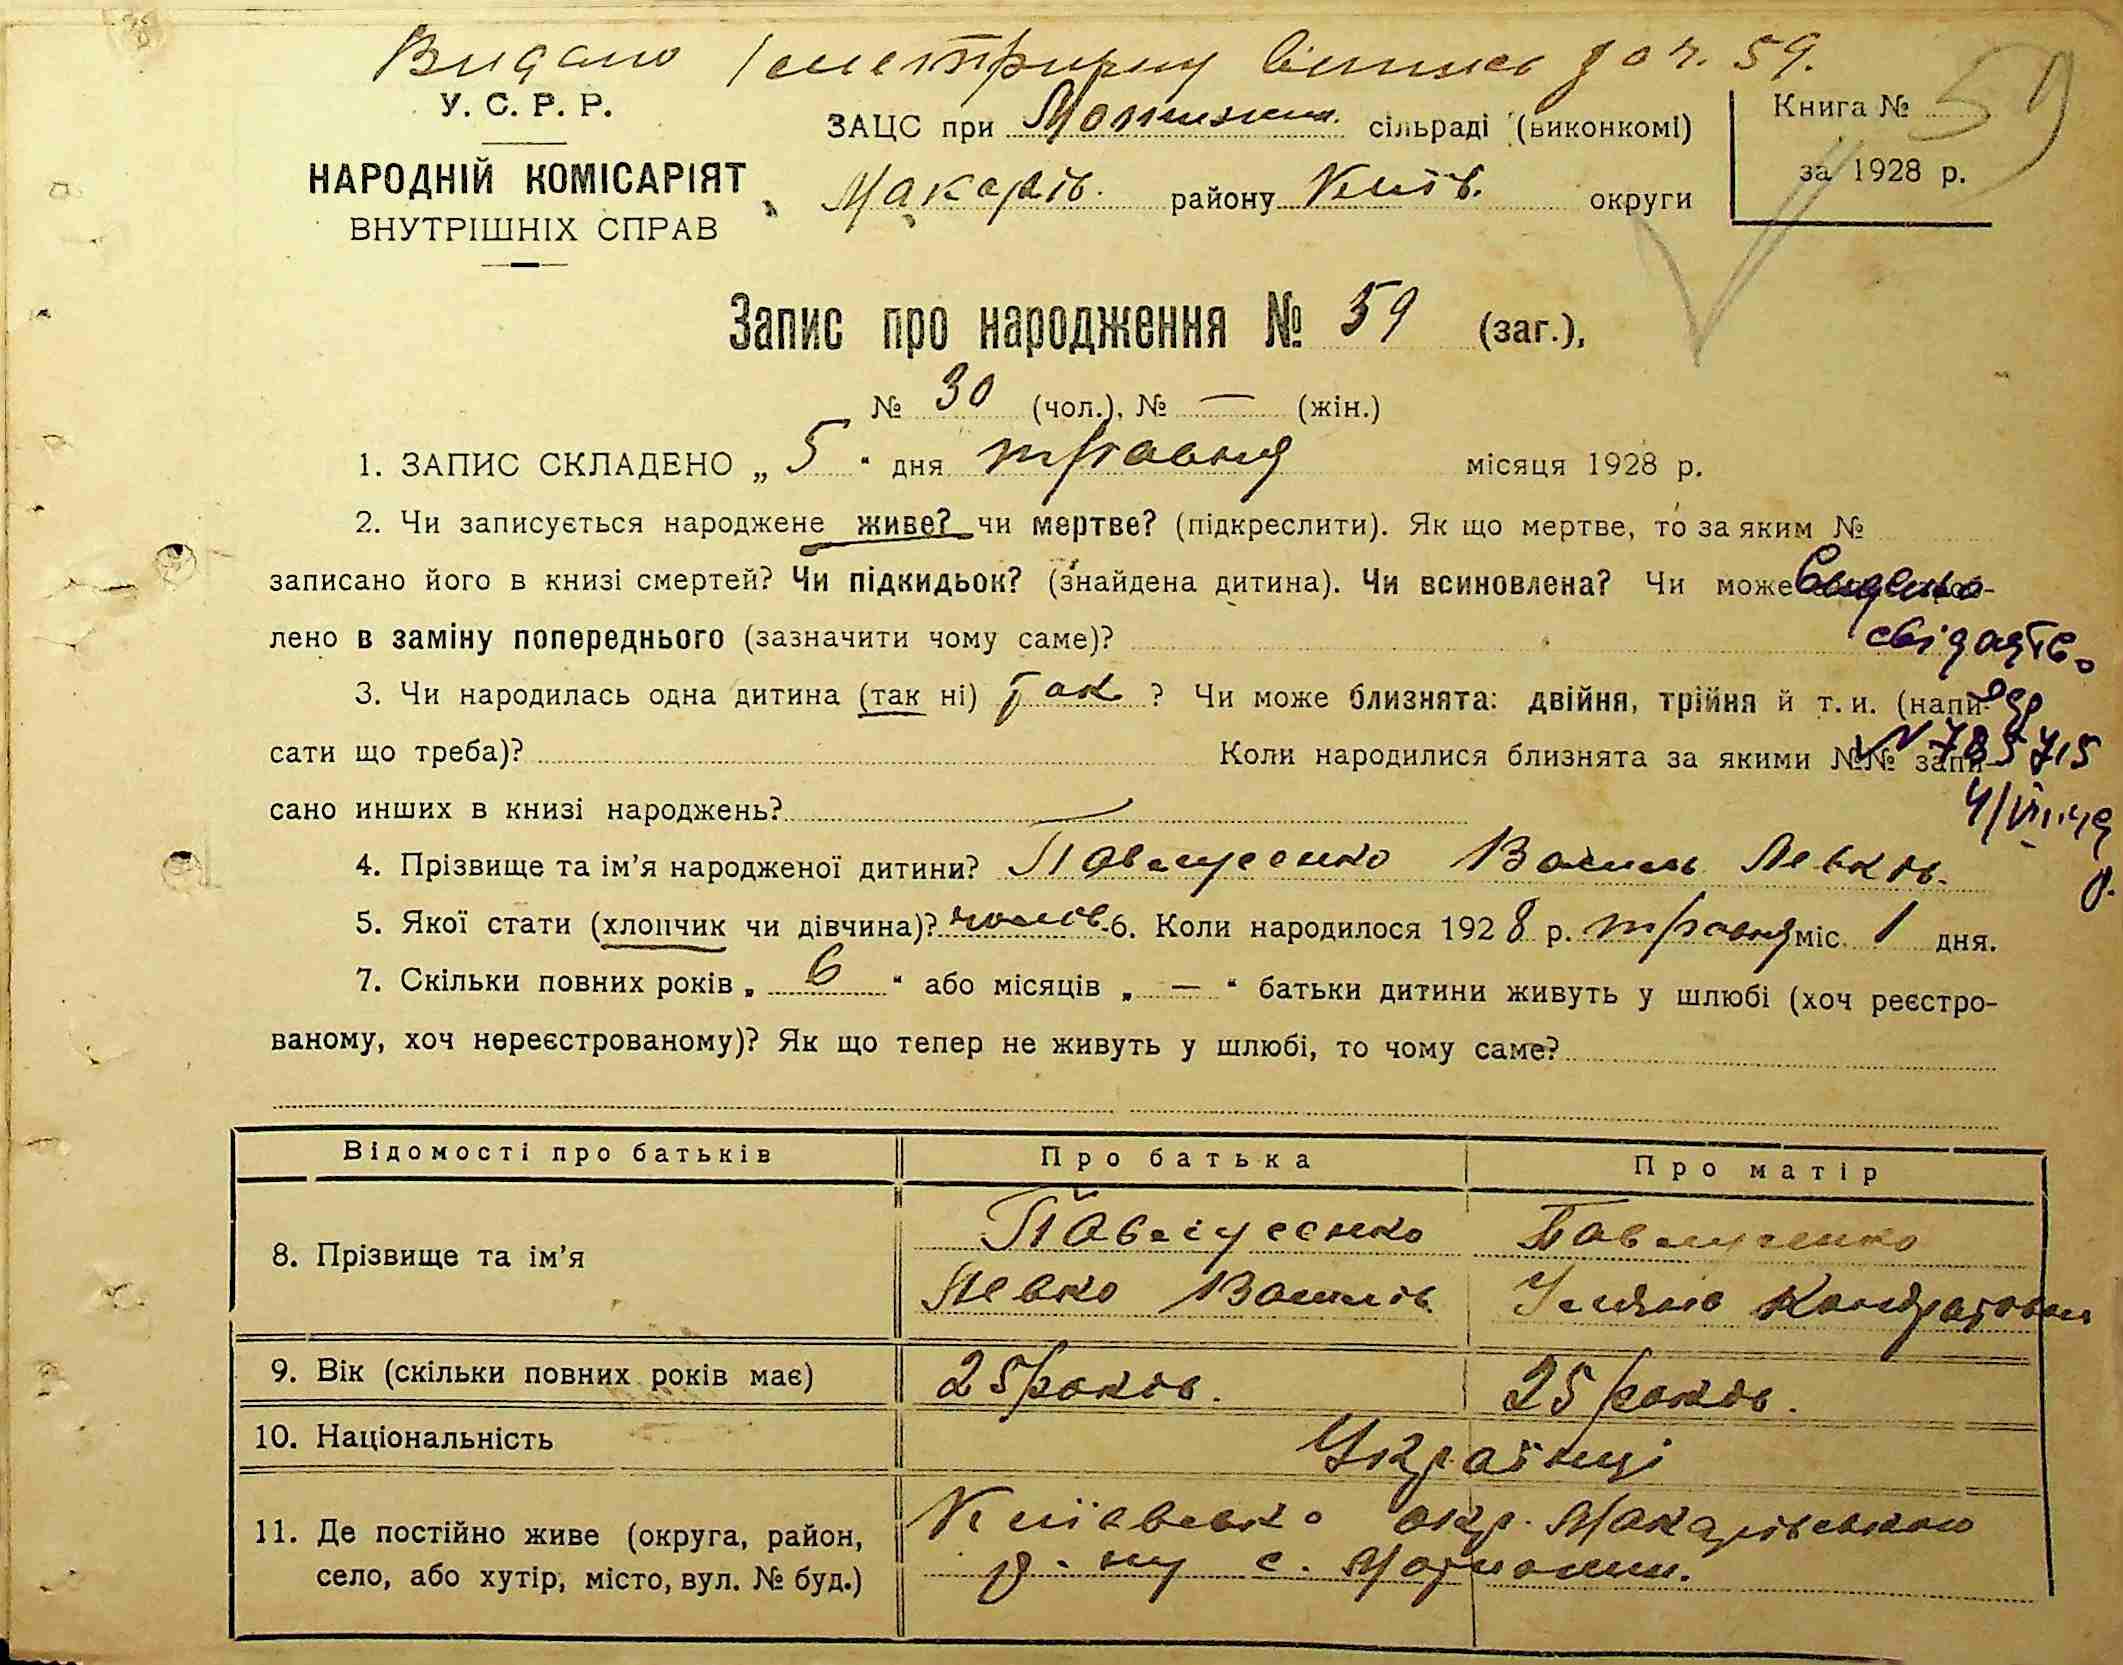 Видано метричну випись до ч. 59.
У. С. Р. Р.
НАРОДНІЙ КОМІСАРІЯТ
ВНУТРІШНІХ СПРАВ
ЗАЦС при сільраді (виконкомі)
Макарів. району Київ. округи
Книга № 59
за 1928 р.
Запис про народження № 59 (заг.),
№ 30 (чол.), № — (жін.)
1. ЗАПИС СКЛАДЕНО „ 5 “ дня травня місяця 1928 р.
2. Чи записується народжене живе? чи мертве? (підкреслити). Як що мертве, то за яким №
записано його в книзі смертей? Чи підкидьок? (знайдена дитина). Чи всиновлена? Чи може
лено в заміну попереднього (зазначити чому саме)?
Видано
свідоцтво
3. Чи народилась одна дитина (так ні) так ? Чи може близнята: двійня, трійня й т. и. (напи-
сати що треба)? Коли народилися близнята за якими №№ запи-
№ 785715
сано инших в книзі народжень?
4. Прізвище та ім’я народженої дитини? Павлусенко Василь Левків.
5. Якої стати (хлопчик чи дівчина)? чолов. 6. Коли народилося 1928 р. травня міс. 1 дня.
7. Скільки повних років „ 6 “ або місяців „ — “ батьки дитини живуть у шлюбі (хоч реєстро-
ваному, хоч нереєстрованому)? Як що тепер не живуть у шлюбі, то чому саме?
Відомості про батьків Про батька Про матір
8. Прізвище та ім’я
Павлусенко
Левко Василів
Павлусенко
Уляна Кондратовна
9. Вік (скільки повних років має) 25 років. 25 років.
10. Національність Українці
11. Де постійно живе (округа, район,
село, або хутір, місто, вул. № буд.)
Київсько окр. Макарівського
р-ну с.